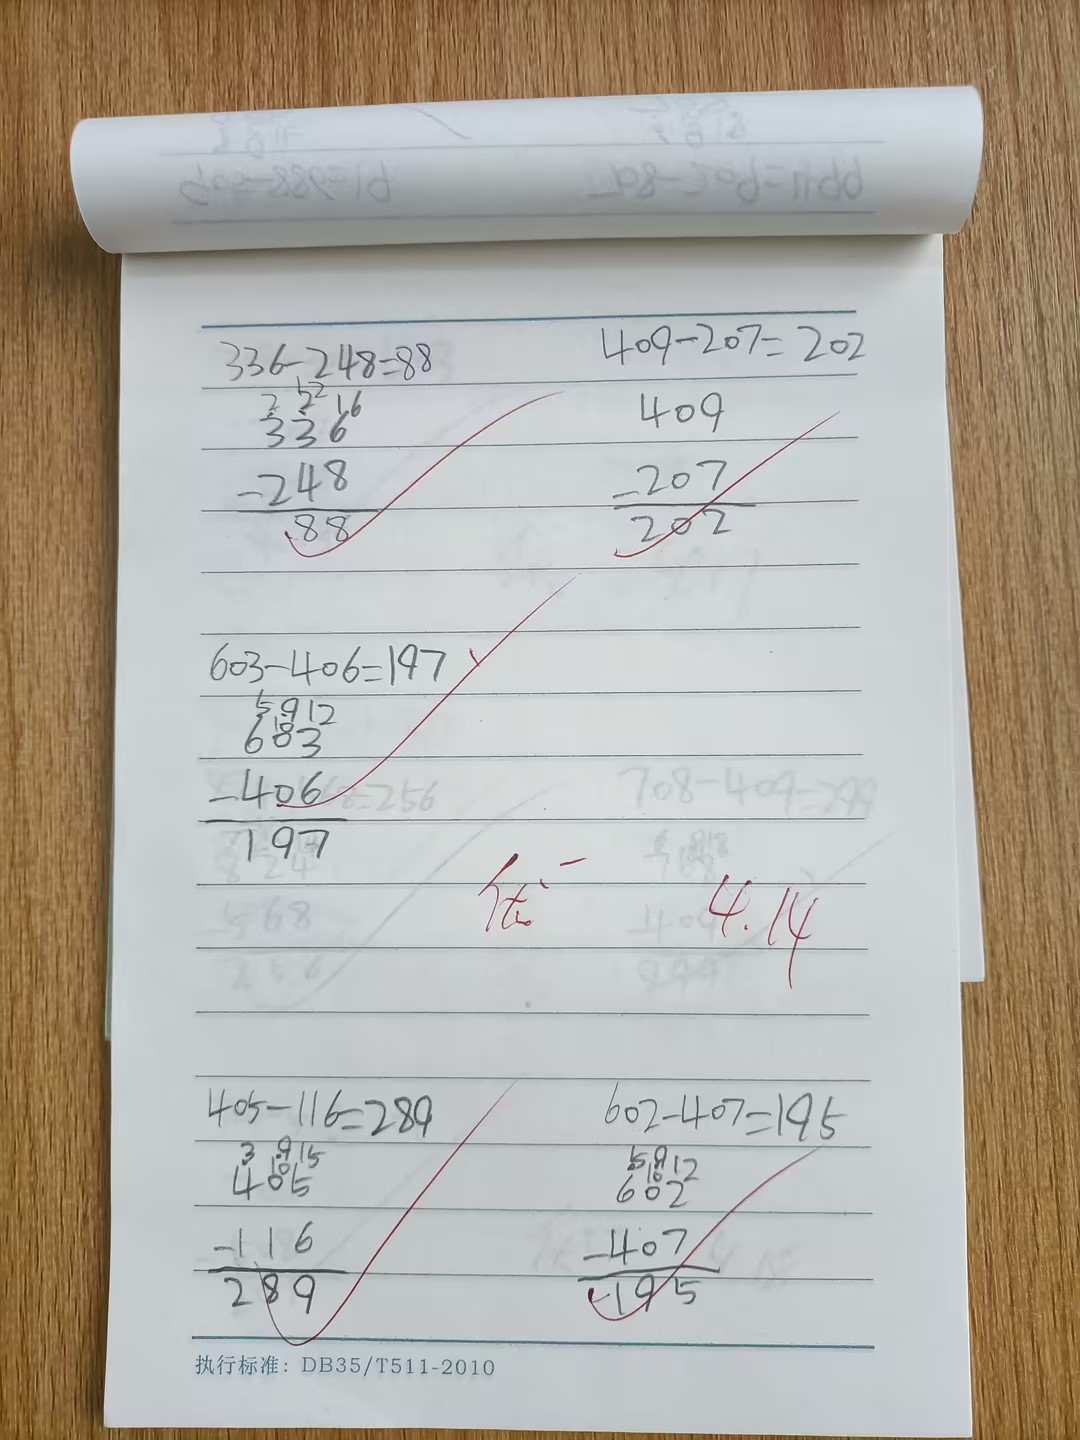 336-248=88
2 12 16
336
-248
88
409-207=202
409
-207
202
603-406=197
5 9 12
10
603
-406
197
优-
4.14
405-116=289
3 9 15
10
405
-116
289
602-407=195
5 9 12
10
602
-407
195
执行标准：DB35/T511-2010